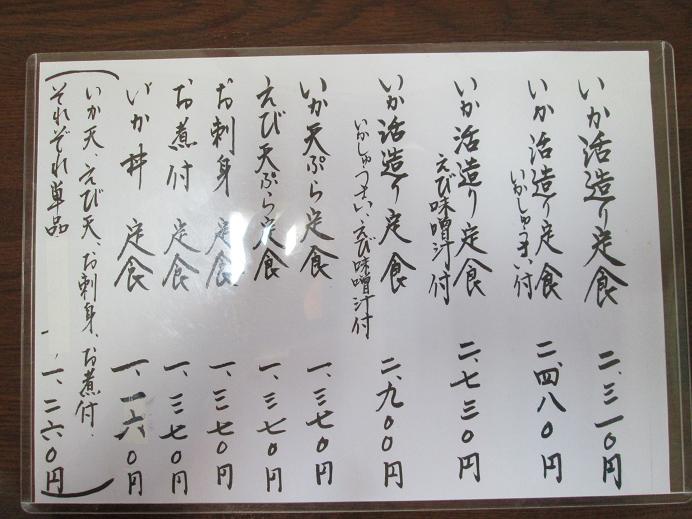 いか活造り定食 二、三一〇円
いか活造り定食 二、四八〇円
いかしゅうまい付
いか活造り定食 二、七三〇円
えび味噌汁付
いか活造り定食 二、九〇〇円
いかしゅうまい、えび味噌汁付
いか天ぷら定食 一、三七〇円
えび天ぷら定食 一、三七〇円
お刺身定食 一、三七〇円
お煮付定食 一、三七〇円
いか丼定食 一、一六〇円
(いか天、えび天、お刺身、お煮付、
それぞれ単品 一、二六〇円)